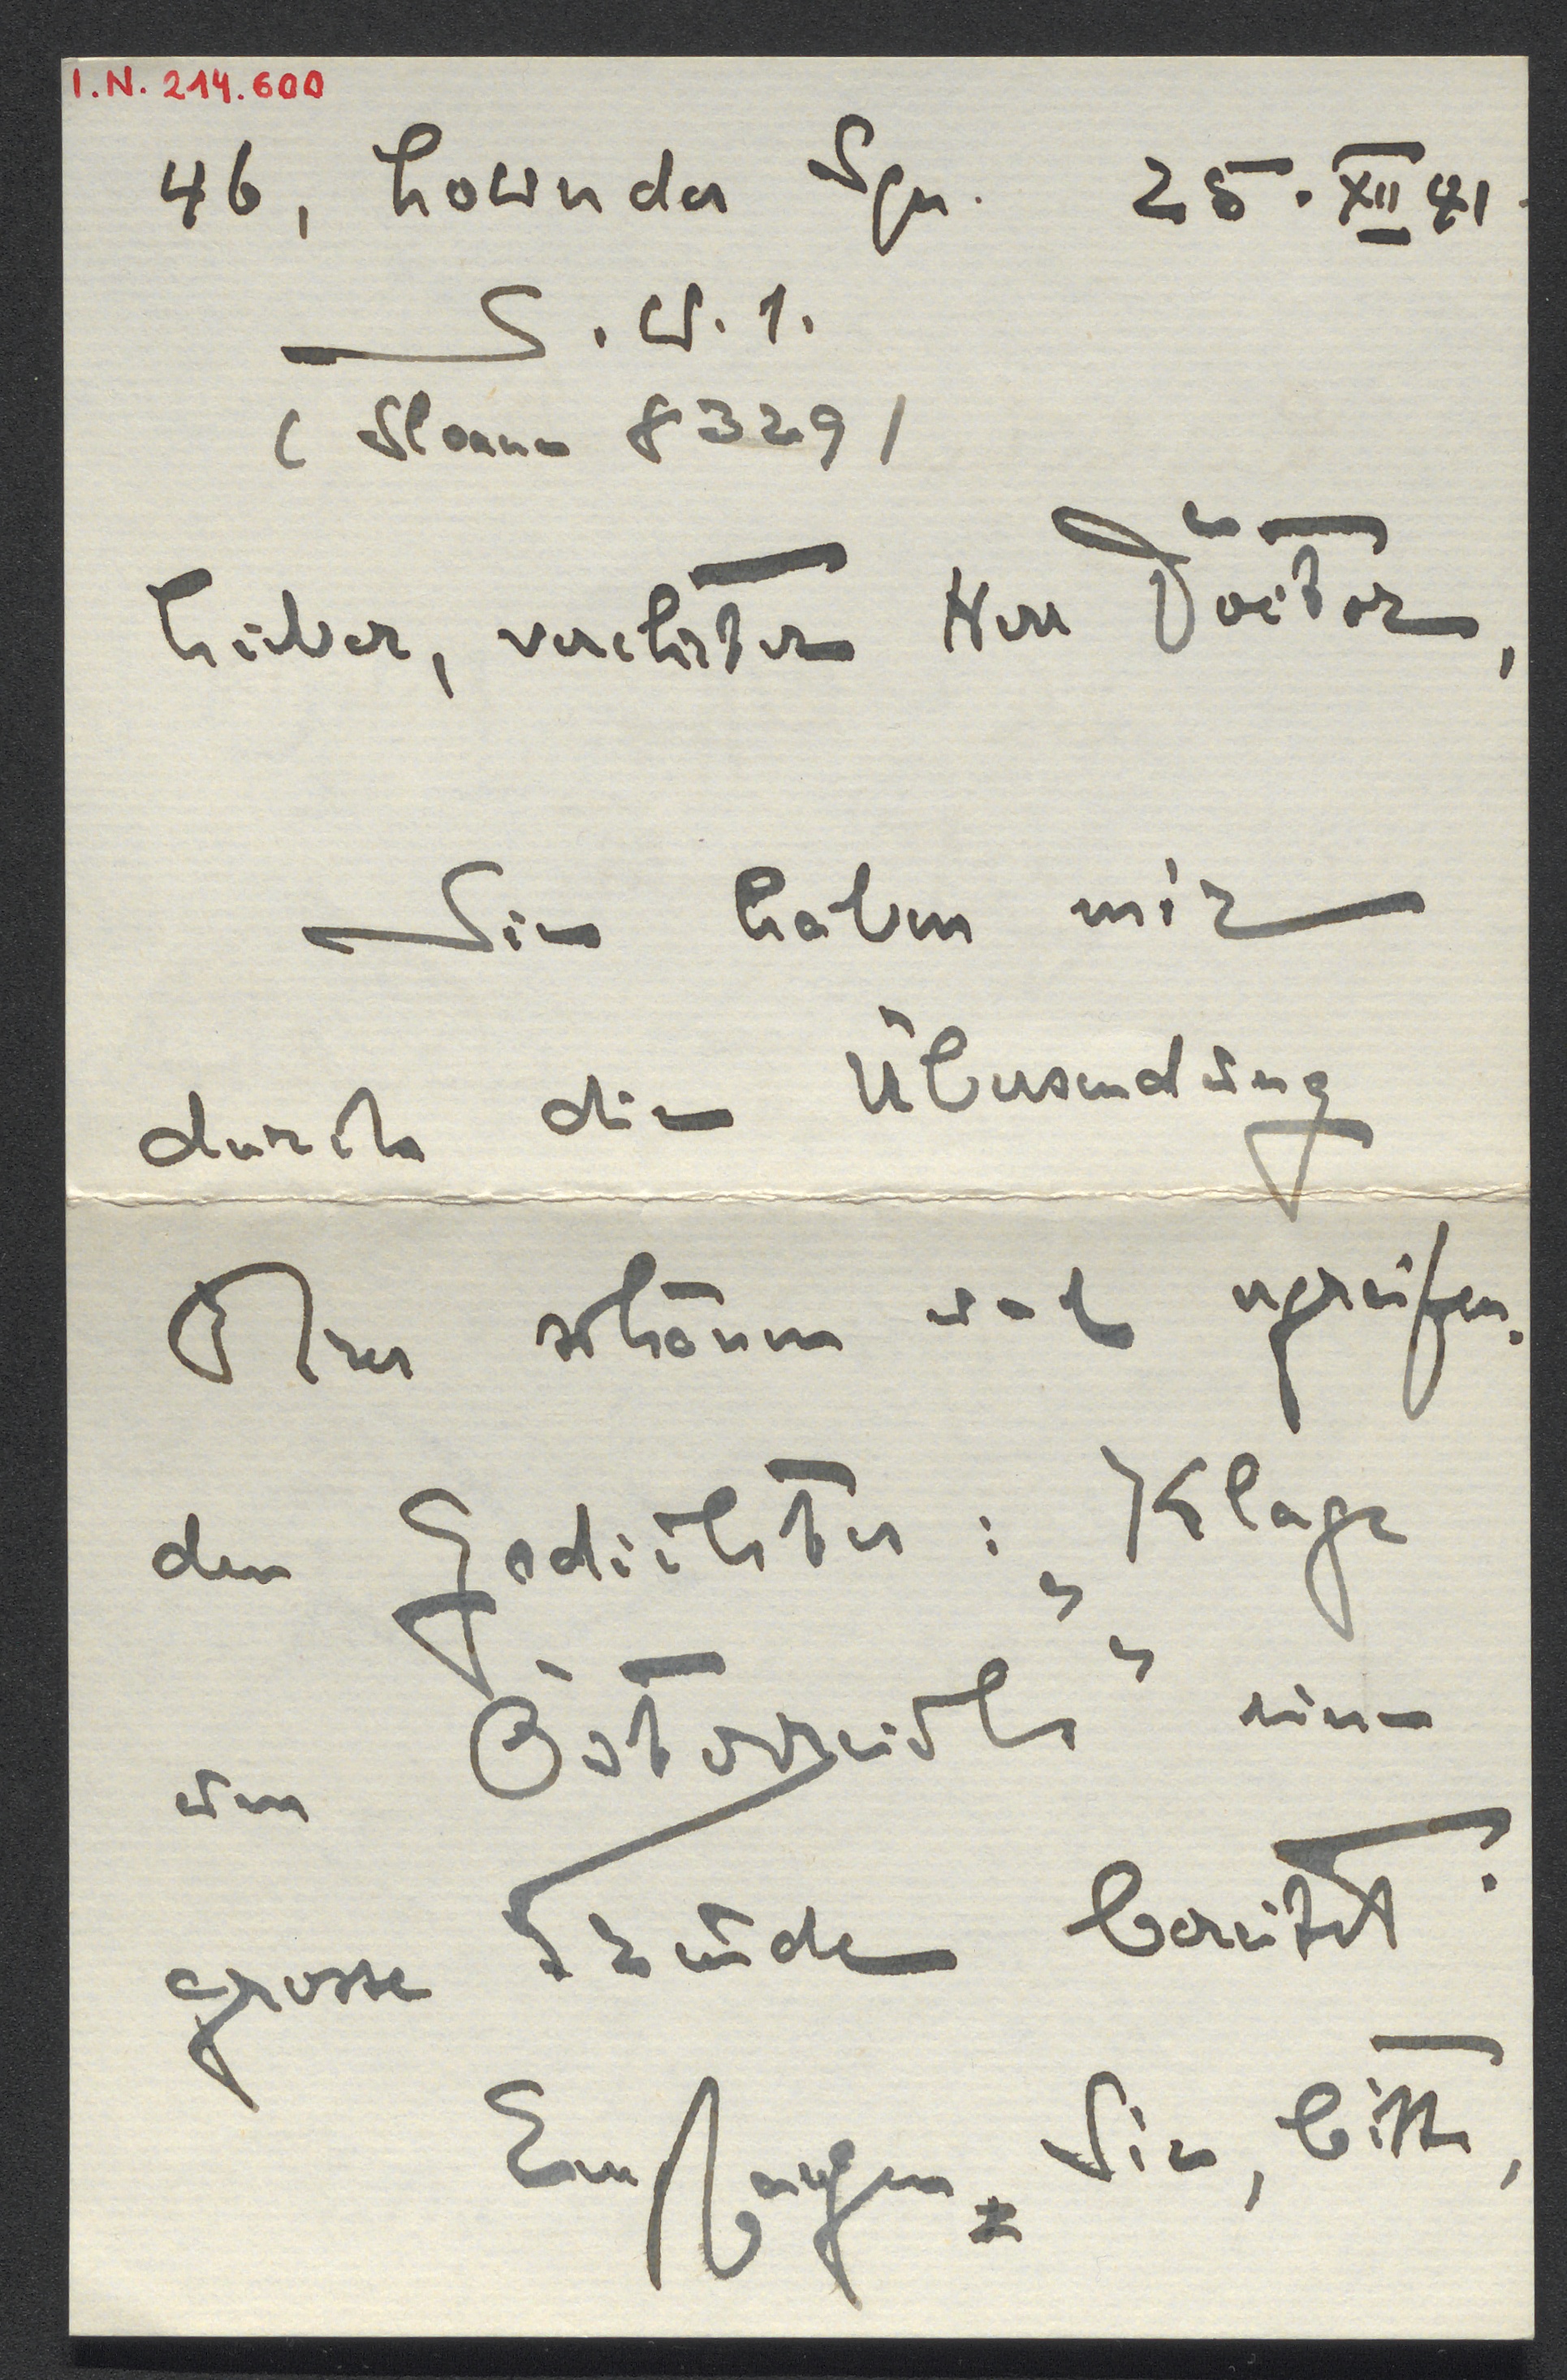 I.N. 214.600
46, Lowndes Sqr. 25. XII 41.
S. W. 1.
(Sloane 8329)
Lieber, verehrter Herr Doctor,
Sie haben mir
durch die Übersendung
Ihres schönen und ergreifen-
den Gedichtes: „Klage
um Österreich" eine
grosse Freude bereitet!
Empfangen Sie, bitte,